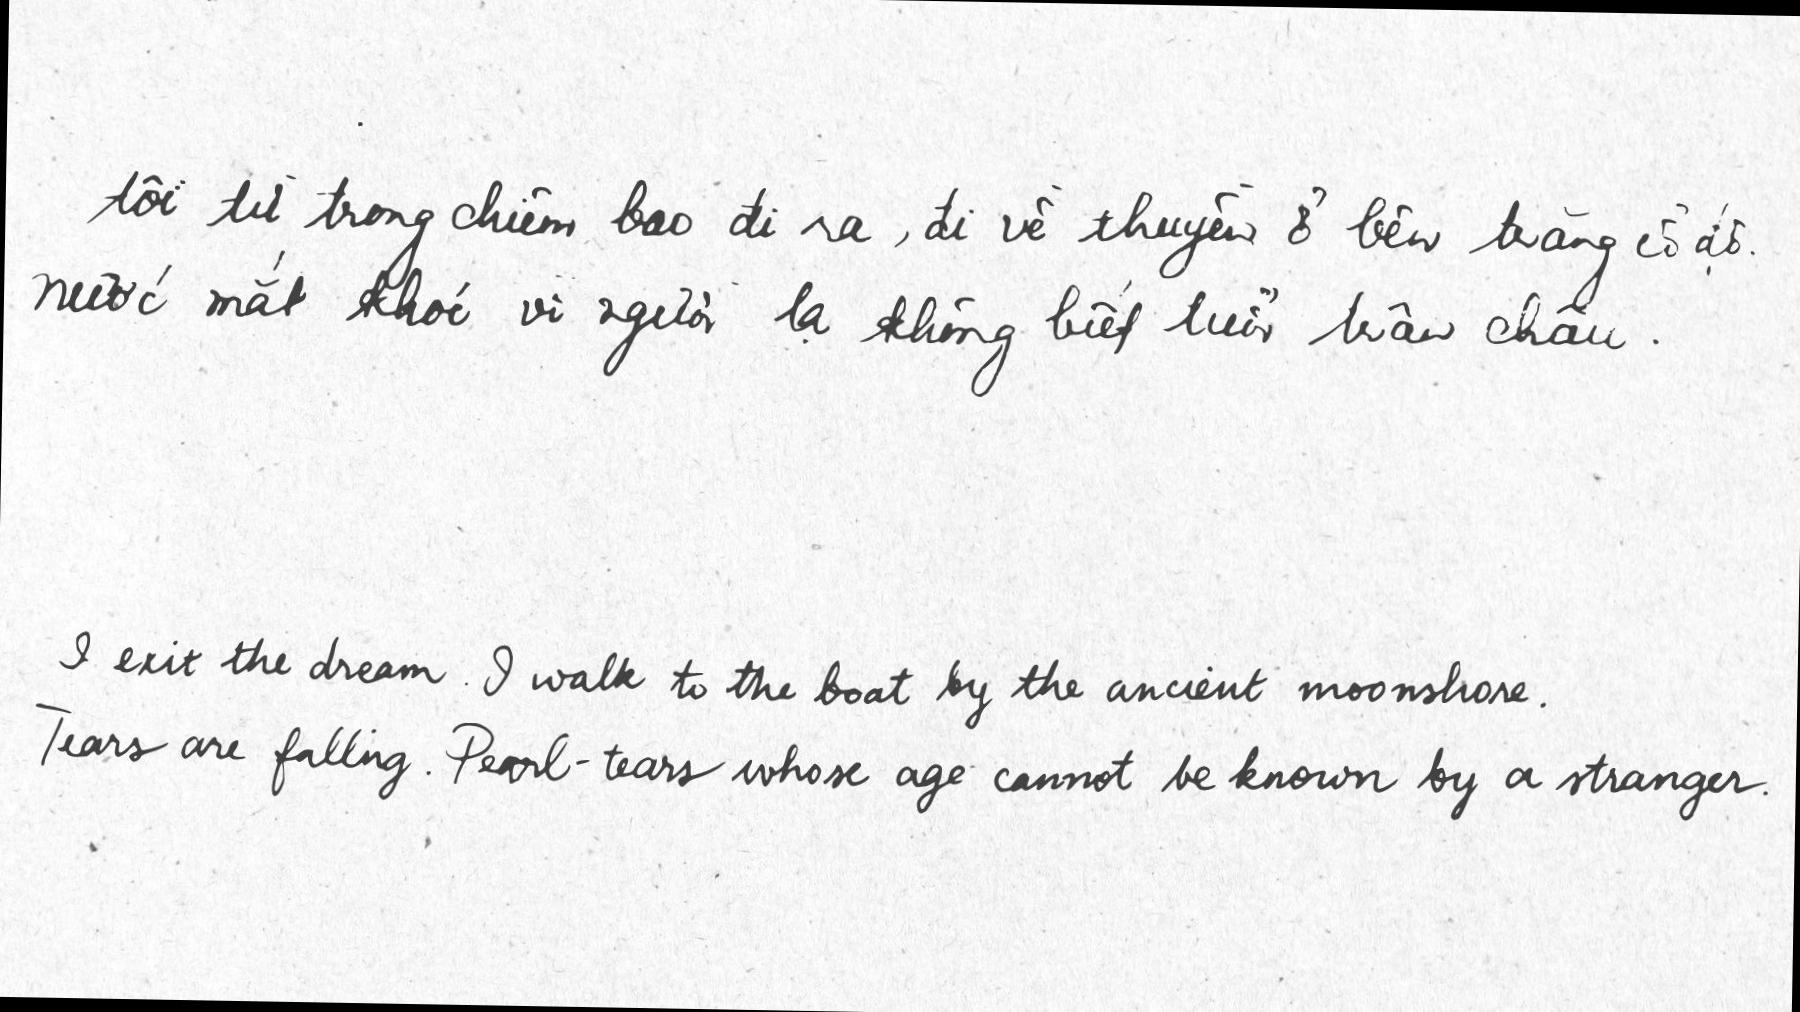 tôi từ trong chiêm bao đi ra, đi về thuyền ở bên trăng cố độ.
nước mắt khóc vì người lạ không biết tuổi trân châu.
I exit the dream. I walk to the boat by the ancient moonshore.
Tears are falling. Pearl-tears whose age cannot be known by a stranger.